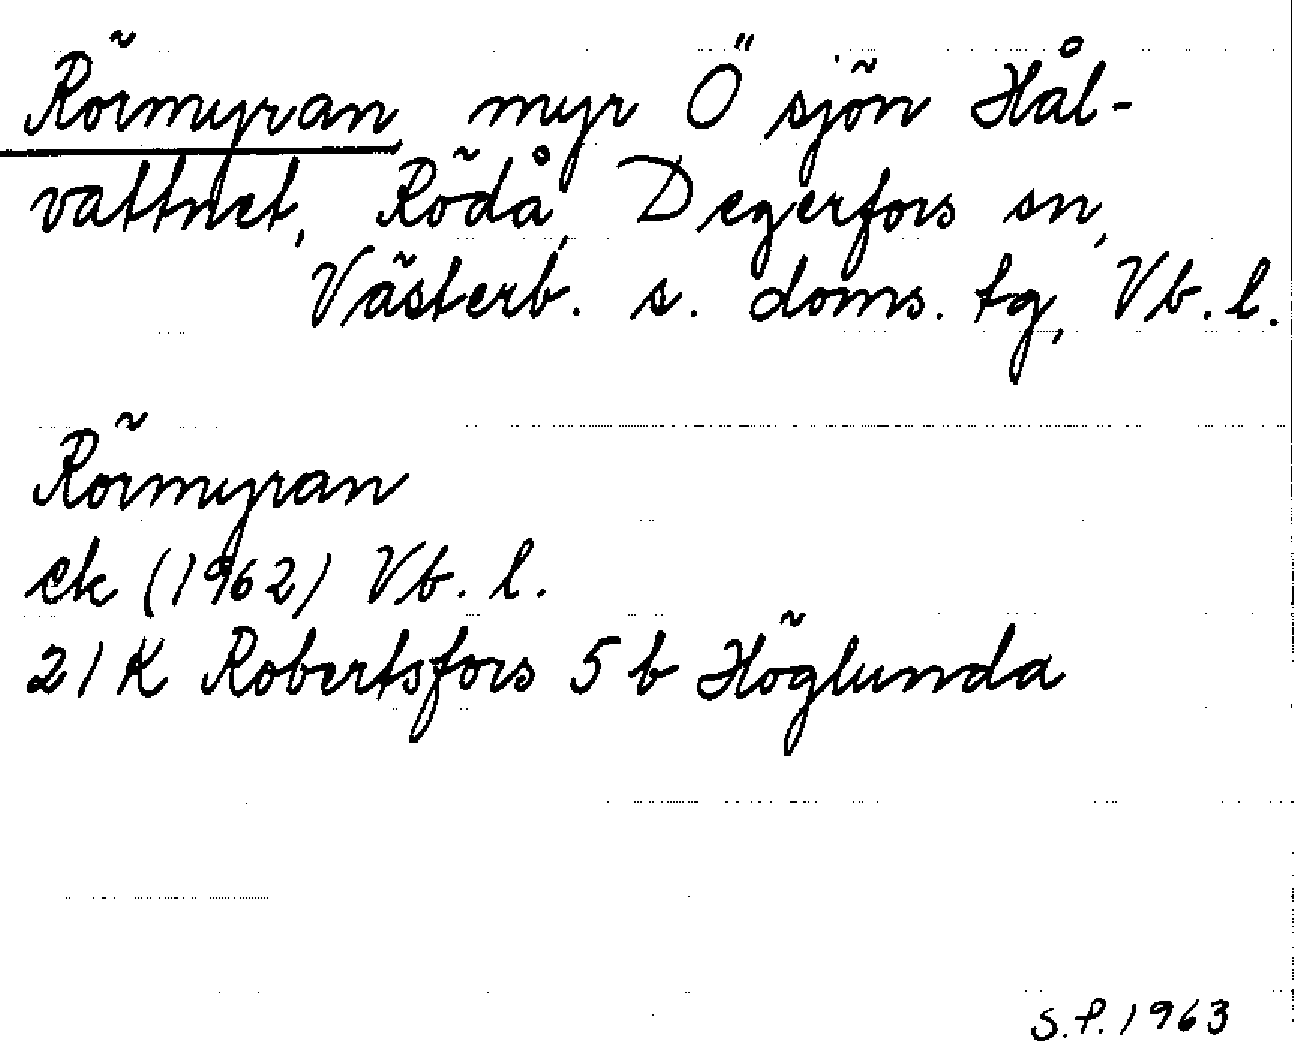 Rörmyran myr Ö sjön Hål-
vattnet, Rödå, Degerfors sn,
Västerb. s. doms. tg, Vb. l.
Rörmyran
ek (1962) Vb. l.
21K Robertsfors 5b Höglunda
S.P. 1963